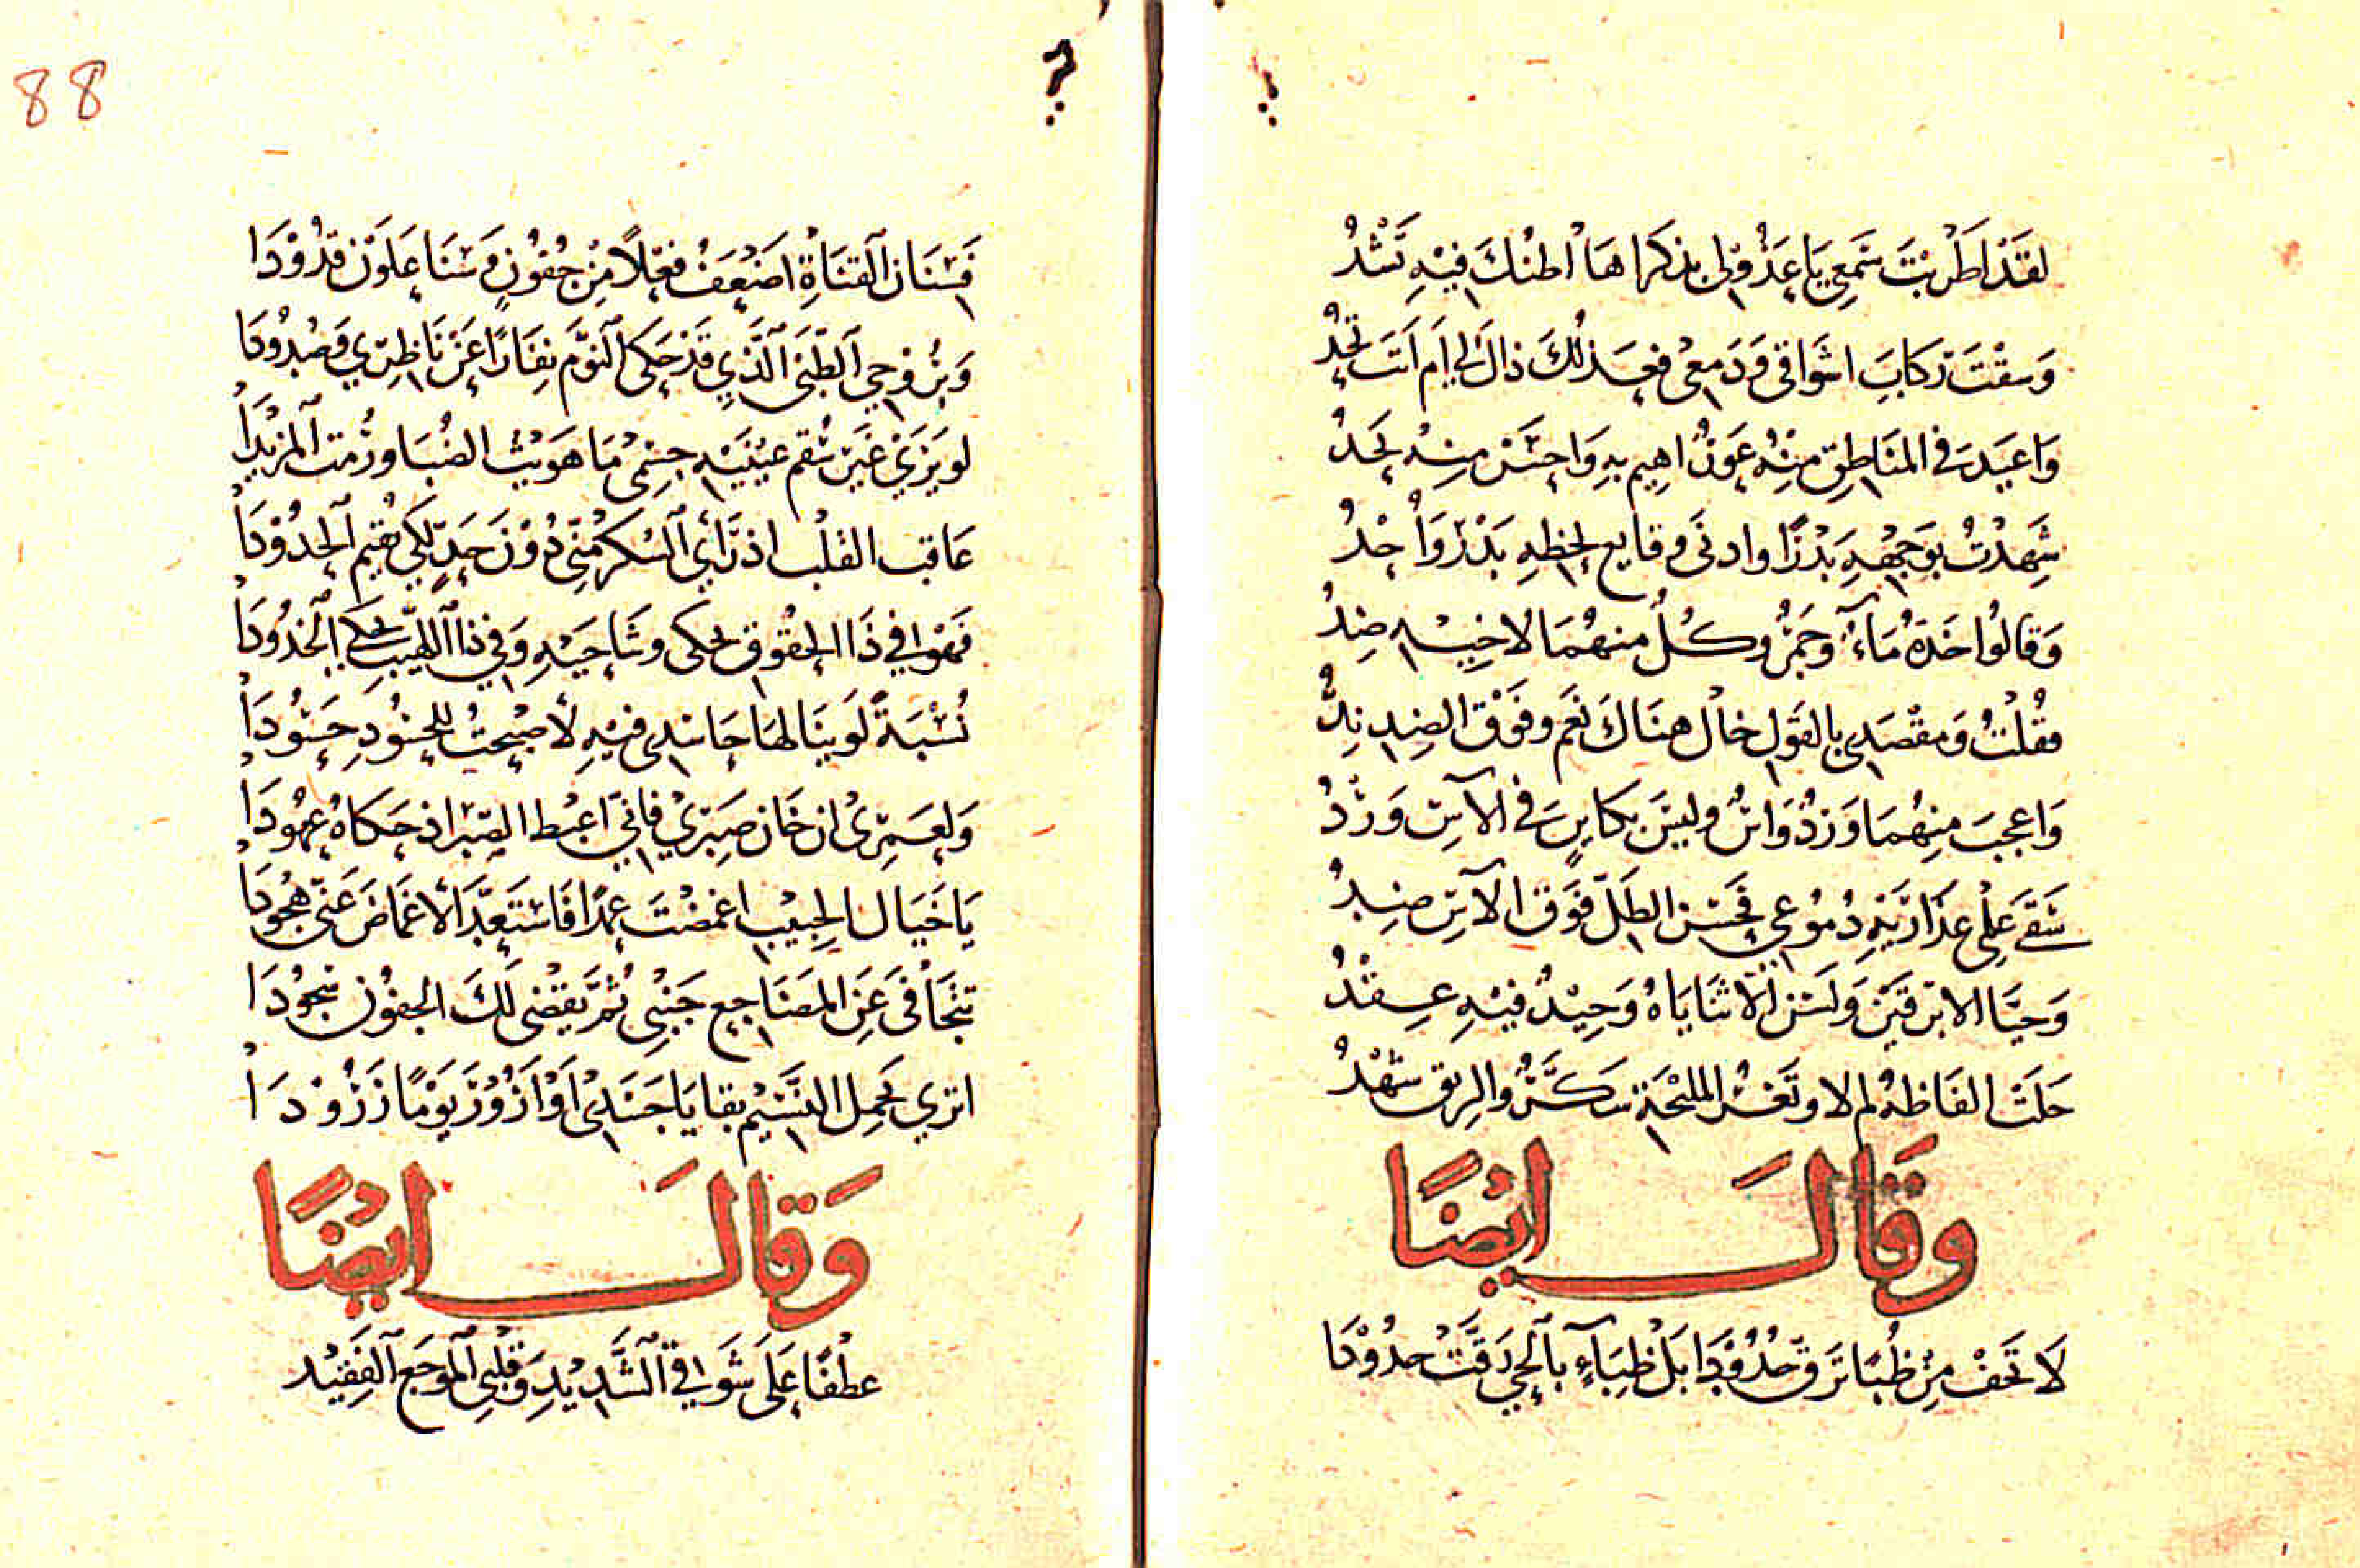 لَقَدْ اَطْرَبْتَ سَمْعِي يَا عَذُوْلِي بِذِكْرَاهَا اَظُنُّكَ فِيْهِ تَشْدُ
وَسُقْتَ رِكَابَ اشْوَاقِي وَدَمْعِي فَعَذْلُكَ ذَاكَ لِي اَم اَنْتَ تَحْدُ
وَاغْيَدَ فِي المَنَاطِقِ مِنْهُ غَوْرٌ اهِيمُ بِهِ وَاحْسَنُ مِنْهُ نَجْدُ
شَهِدْتُ بِوَجْهِهِ بَدْرًا وادنى وقايع لحظِهِ بَدْرٌ وَاُحْدُ
وَقَالُوا خَدّهُ مَاءٌ وجَمْرٌ وكُلٌ منهُمَا لاخِيْهِ ضِدُ
فقُلْتُ وَمقْصَدِي بِالقَولِ خالٌ هنَاكَ نَعَم وفَوْقَ الضِدِ نِدُّ
وَاعجبَ مِنهُمَا وَرْدٌ وَاسٌ وليسَ بكَاينٍ فِي الآسِ وَرْدُ
سَقَى عَلَى عِذَارَيْهِ دُمُوْعِي فَحُسْنُ الطَلِّ فَوْقَ الآسِ
وَحَيَّا الابرقَيْنِ وَلَسْنَ الا ثَنَايَاهُ وَجِيْدٌ فِيْهِ عِقْدُ
حَلَتْ الفَاظهُ لم لا وثَغْرُ المليْحَةِ سكّرٌ والرِيق شَهْدُ
وَقَالَ ايْضًا
لَا تَخَفْ مِنْ ظُبًا تَرِقّ حُدُوْدَا بَلْ ظِبَآءٍ بِالحَيِّ دَقَّتْ خدُوْدَا
88
فَسِنَانُ القَنَاةِ اضْعَفُ فعْلًا مِنْ جُفُوْنٍ وَسْنَا عَلَوْنَ قدُوْدَا
وَبِرُوْحِي الظَّبْيَ الَّذِي قَدْ حَكَى النَوْمَ نِفَارًا عَنْ نَاظِرِي وَصُدُودَا
لو يَرَى غَيْرَ سُقْمِ عَيْنَيْهِ جِسْمِي مَا هَوَيْتُ الضُبَا وَرُمْتُ المَزِيْدَا
عَاقب القَلْبَ اذ رَّأَى السُكْرَ مِنِّي دُوْنَ حَدٍّ لِكَي يُقِيْمَ الحُدُوْدَا
فَهْوَ فِي ذَا الخُفُوْقِ يَحكي وشَاحَيْهِ وَفِي ذَا اللَّهِيْبِ يَحكي الخُدُوْدَا
نُسْبَةً لَو يَنَالُهَا حَاسِدِي فِيْهِ لَأَصْبَحْتُ لِلْحَسُوْدِ حَسُوْدَا
وَلعَمْرِي ان خَانَ صَبْرِي فَانِّي اغبط الصَبْرَ اذ حَكَاهُ عهُوْدَا
يَا خَيَالَ الحَبِيْبِ اغْمَضْتَ عَمْدًا فَاسْتَعدَّ الأغْمَاضَ عَنِّي هُجُوْدَا
تَتَجَافَى عَنِ المَضَاجِعِ جَنْبِي ثُمَّ يَقْضِي لَكَ الجفُوْن سُجُوْدَا
اترى يَحمِل النَّسيْم بقايَا جَسَدِي اَوْ اَزُوْرَ يَوْمًا زَرُوْدَا
وَقَالَ ايْضًا
عَطْفًا عَلَى شَوْقِي الشَّدِيْدِ وَقَلْبِي المُوْجَعِ الفَقِيْد